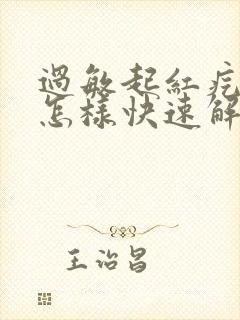 過敏起紅疙
怎樣快速解
王治昌